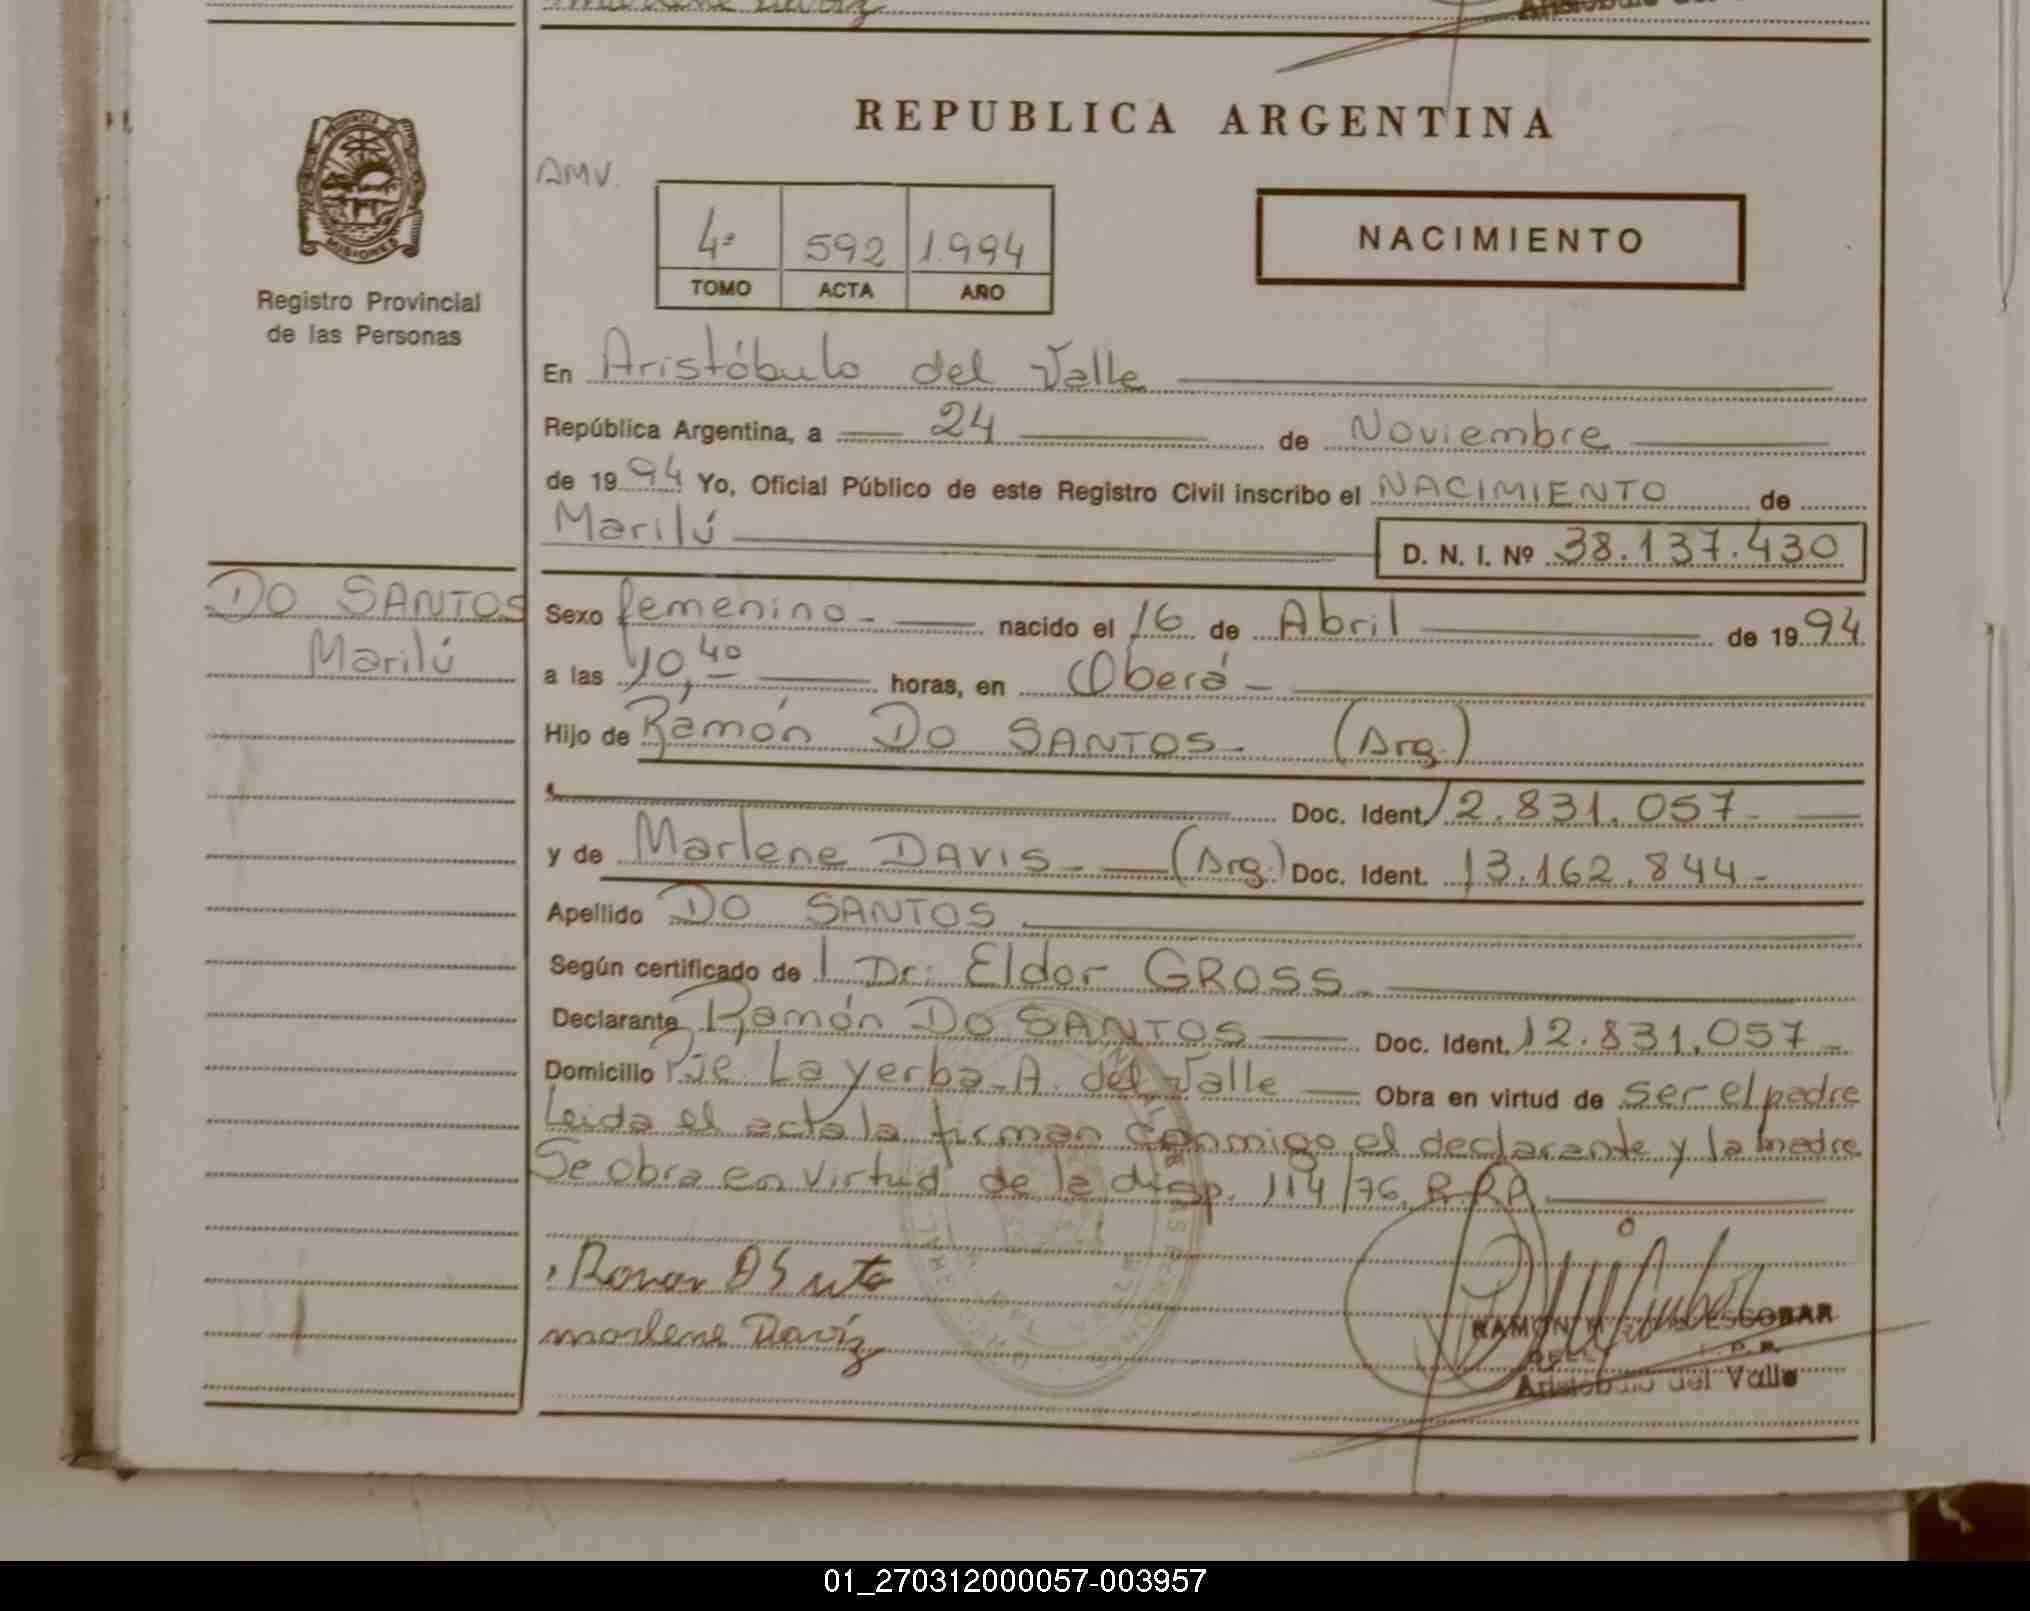 REPUBLICA ARGENTINA
AMV.
4º 592 1.994
TOMO ACTA AÑO
NACIMIENTO
PROVINCIA DE
MISIONES
Registro Provincial
de las Personas
En Aristóbulo del Valle
República Argentina, a 24 de Noviembre
de 1994 Yo, Oficial Público de este Registro Civil inscribo el NACIMIENTO de
Marilú D. N. I. Nº 38.137.430
DO SANTOS
Marilú
Sexo femenino. nacido el 16 de Abril de 1994
a las 10,40 horas, en Oberá
Hijo de Ramón DO SANTOS (Arg.)
Doc. Ident. 12.831.057
y de Marlene DAVIS (Arg.) Doc. Ident. 13.162.844
Apellido DO SANTOS
Según certificado de Dr. Eldor GROSS
Declarante Ramón DO SANTOS Doc. Ident. 12.831.057
Domicilio Pje. La yerba. A. del Valle Obra en virtud de ser el padre
Leida el acta la firman conmigo el declarante y la madre
Se obra en virtud de la disp. 114/76
marlene Daviz
RAMON ESCOBAR
Aristóbulo del Valle
01_270312000057-003957